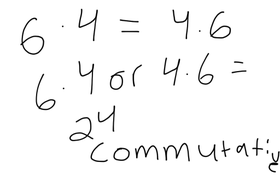 6 · 4 = 4 · 6
6 · 4 or 4 · 6 =
24
commutative